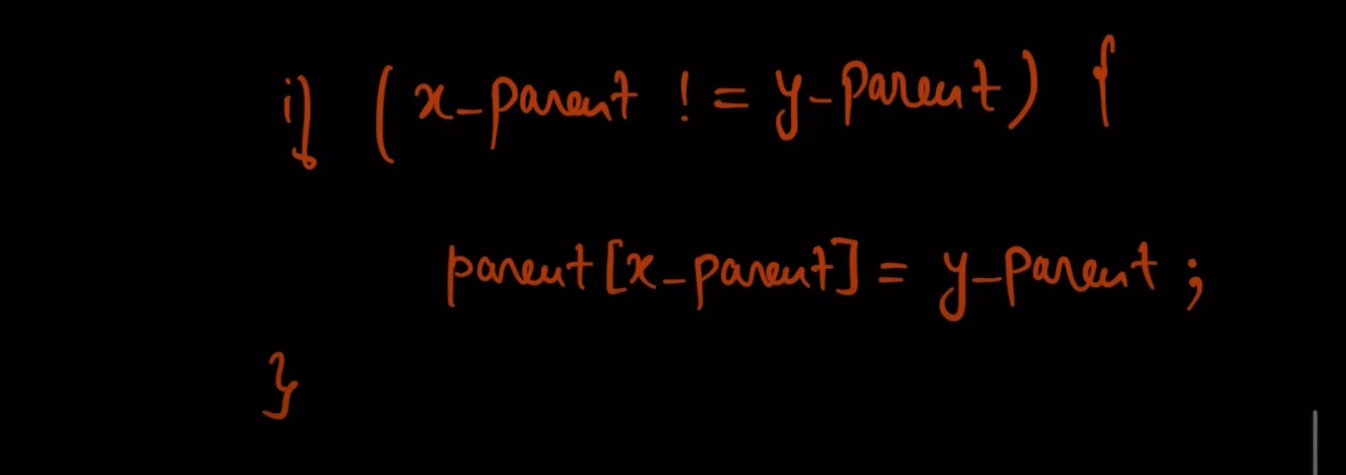 if (x_parent != y_parent) {
parent[x_parent] = y_parent ;
}